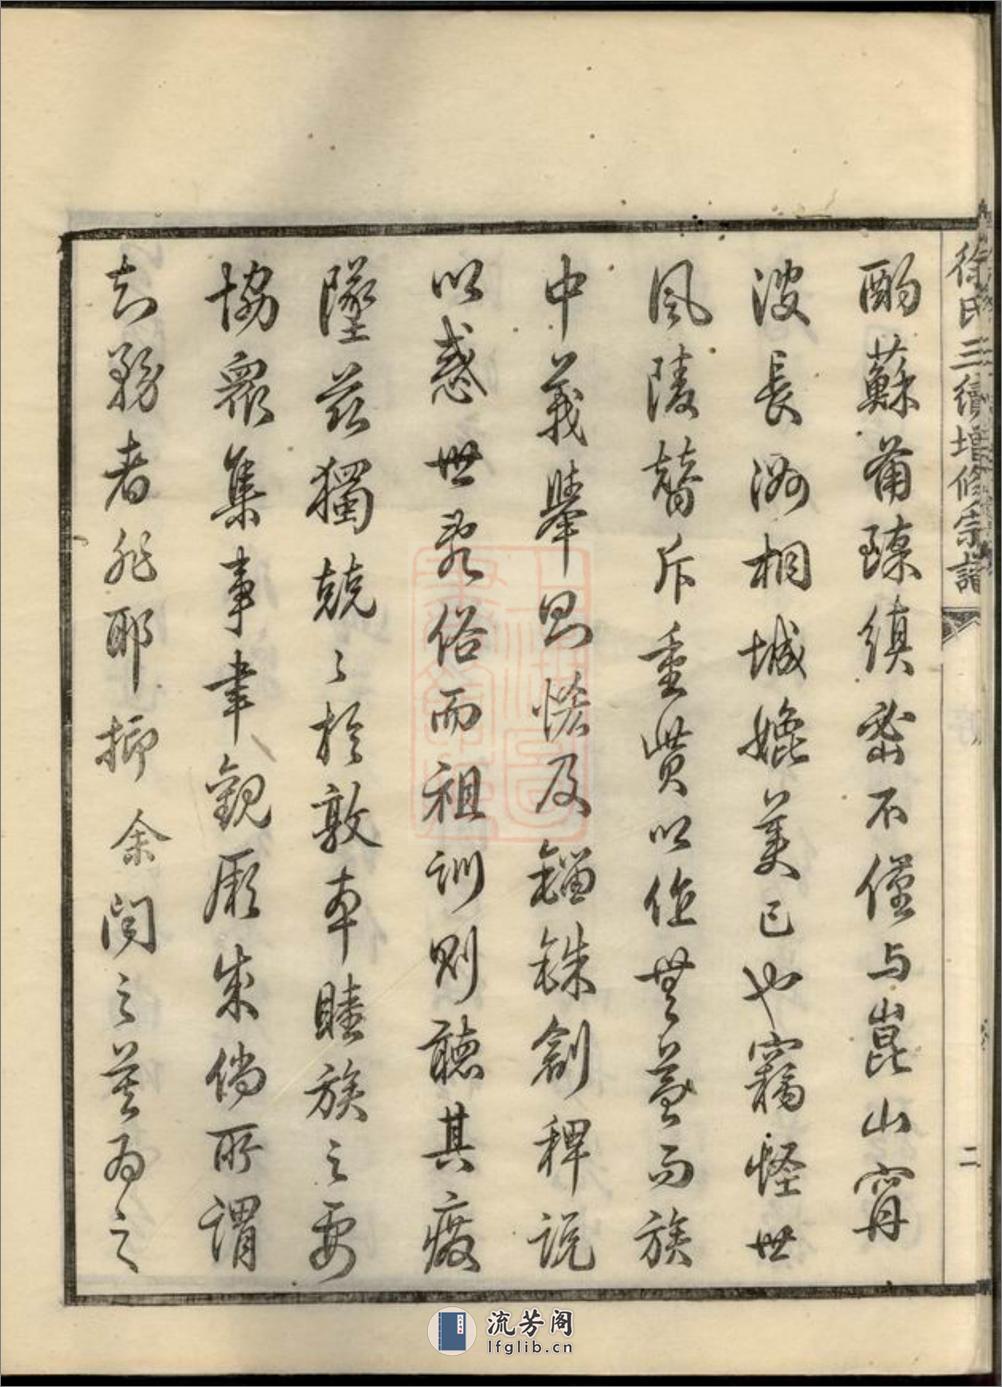 徐氏三續增修宗譜
二
酌蘇甫臻縝密不僅与崑山甯
波長洲相城媲美已也竊怪世
風陵替斥重貲以作無益而族
中義舉則恡及錙銖創稗說
以惑世柔俗而祖訓則聽其廢
墜茲獨兢〻於敦本睦族之要
協衆集事聿觀厥成倘所謂
知務者非耶抑余聞之莫為之
流芳阁
lfglib.cn